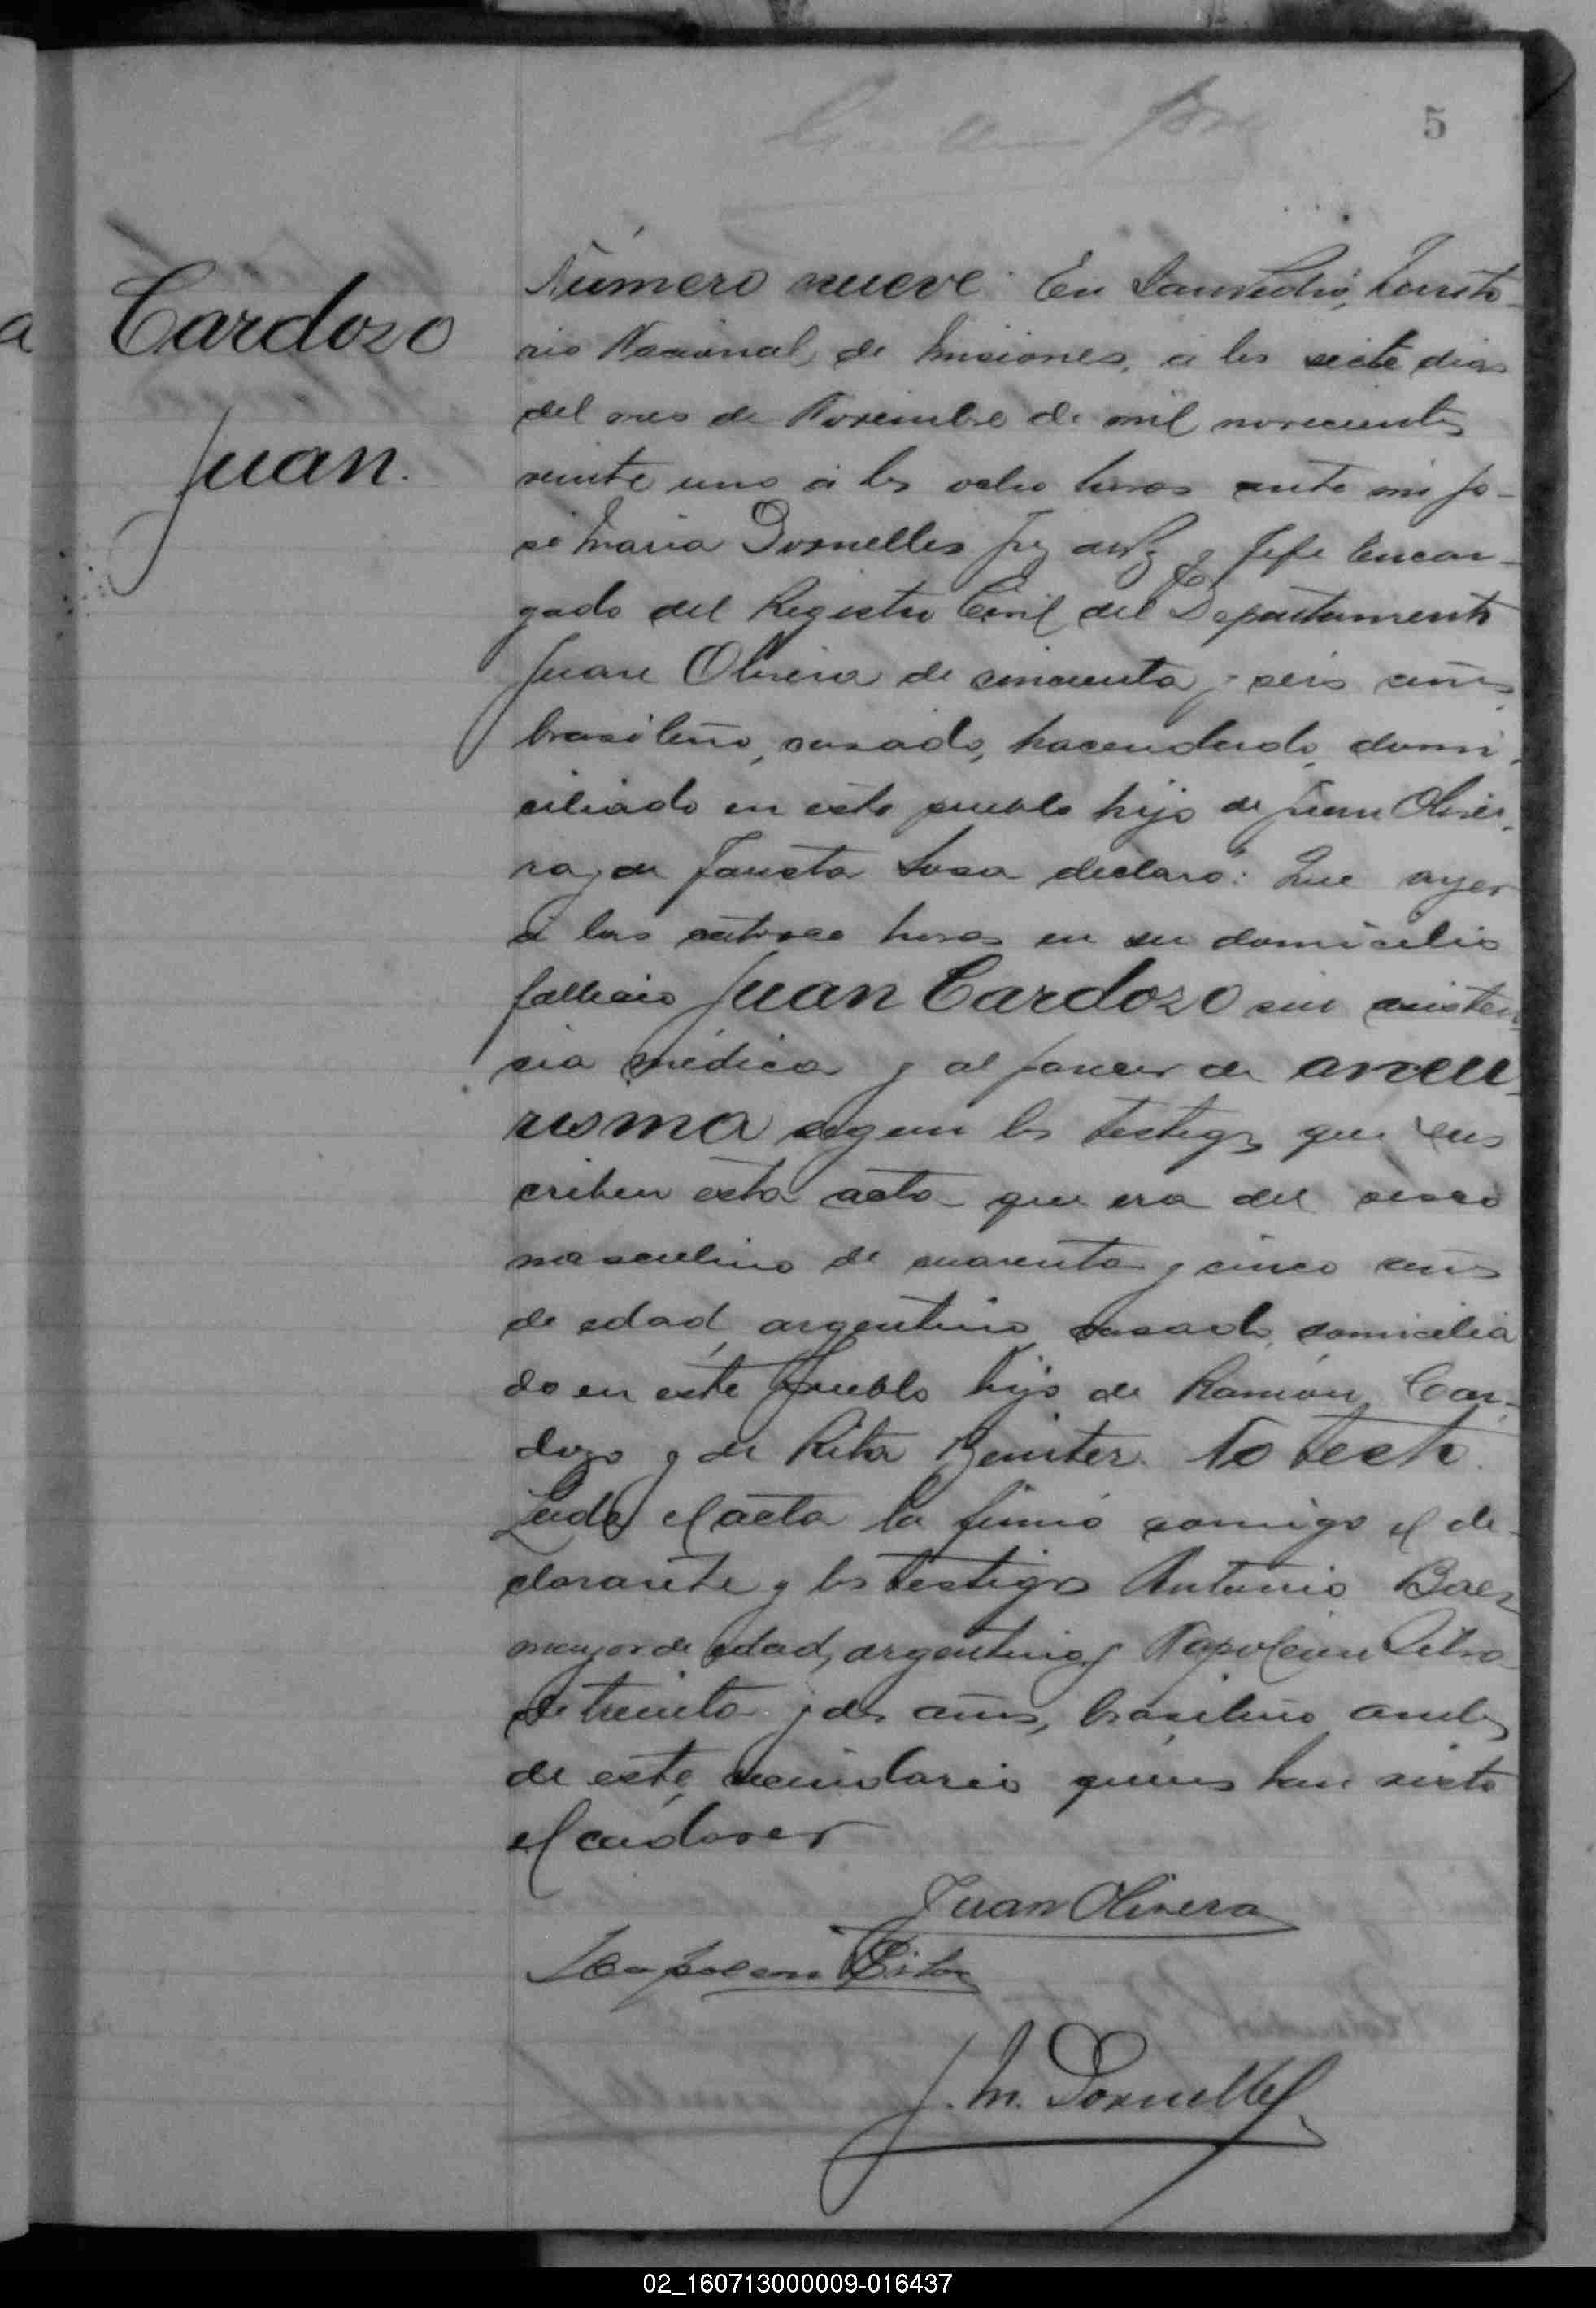 5
Cardozo
Juan.
Número nueve. En San Pedro, Territo-
rio Nacional de Misiones, á los siete dias
del mes de Noviembre de mil novecientos
veinte uno á las ocho horas ante mi Jo-
sé Maria Dornelles Juez de Paz y Jefe Encar-
gado del Registro Civil del Departamento
Juan Olivera de cincuenta y seis años
brasileño, casado, hacendado, domi-
ciliado en este pueblo hijo de Juan Olive-
ra y de Fausta Sosa declaró: Que ayer
á las catorce horas en su domicilio
fallecio Juan Cardozo sin asisten
sia médica y al parecer de aneu-
risma segun los testigos que sus
criben esta acta que era del sexo
masculino de cuarenta y cinco años
de edad, argentino, casado, domicilia
do en este pueblo hijo de Ramón Car-
dozo y de Rita Benitez. No testó.
Leida el acta la firmó conmigo el de-
clarante y los testigos Antonio Baez
mayor de edad, argentino y Napoleon
de treinta y dos años, brasileño ambos
de este vecindario quienes han visto
el cadaver
Juan Olivera
Napoleon
J. M. Dornelles
02_160713000009-016437